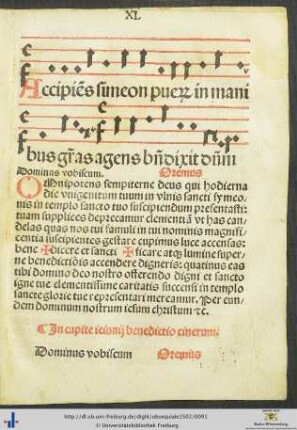 XL
Accipiēs simeon pueꝝ in mani
bus gr̄as agens bn̄dixit dn̄m
Dominus vobiscum. Oremus
Omnipotens sempiterne deus qui hodierna
die vnigenitum tuum in vlnis sancti symeo⸗
nis in templo sancto tuo suscipiendum presentasti:
tuam supplices deprecamur clementiā vt has can⸗
delas quas nos tui famuli in tui nominis magnifi⸗
centia suscipientes gestare cupimus luce accensas:
bene ✠ dicere et sancti ✠ ficare atqꝫ lumine super⸗
ne benedictiōis accendere digneris: quatinus eas
tibi domino deo nostro offerendo digni et sancto
igne tue clementissime caritatis succensi in templo
sancte glorie tue representari mereamur. Per eun⸗
dem dominum nostrum iesum christum ꝛc.
In capite ieiunij benedictio cinerum.
Dominus vobiscum Oremus
http://dl.ub.uni-freiburg.de/diglit/obsequiale1502/0091
© Universitätsbibliothek Freiburg